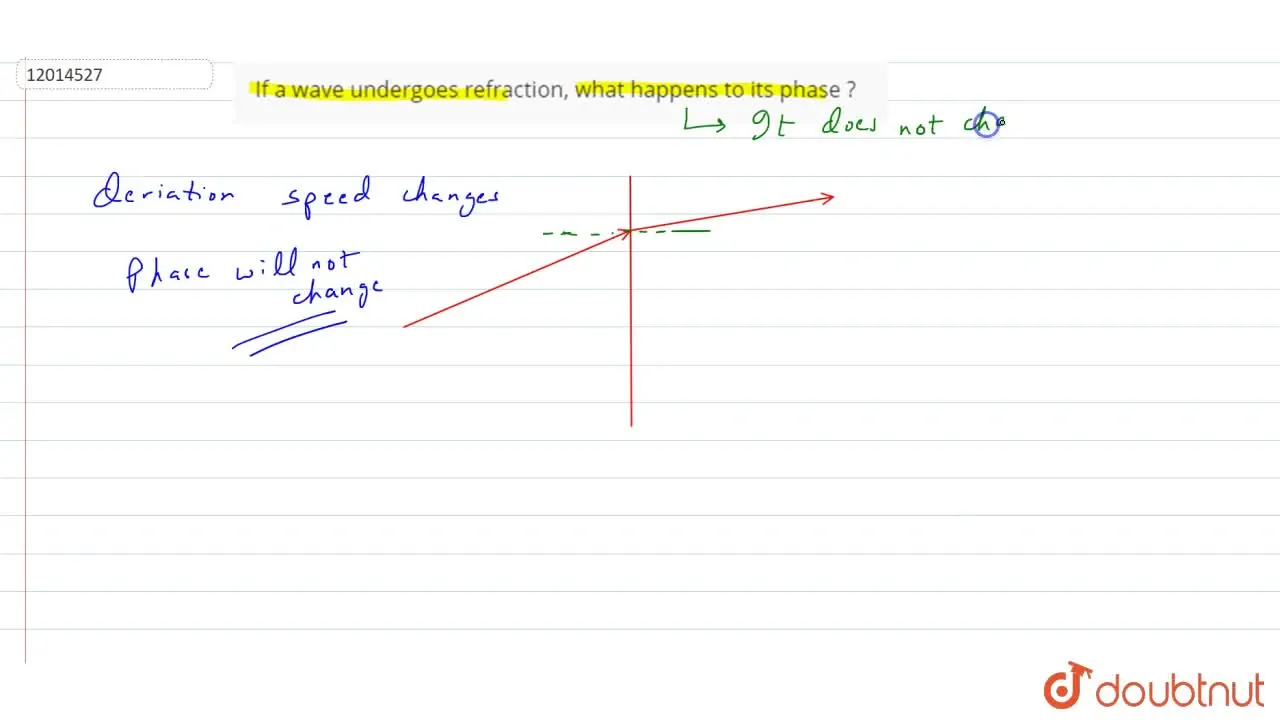 12014527
If a wave undergoes refraction, what happens to its phase ?
↳ It does not cha
Deviation speed changes
Phase will not
change
doubtnut